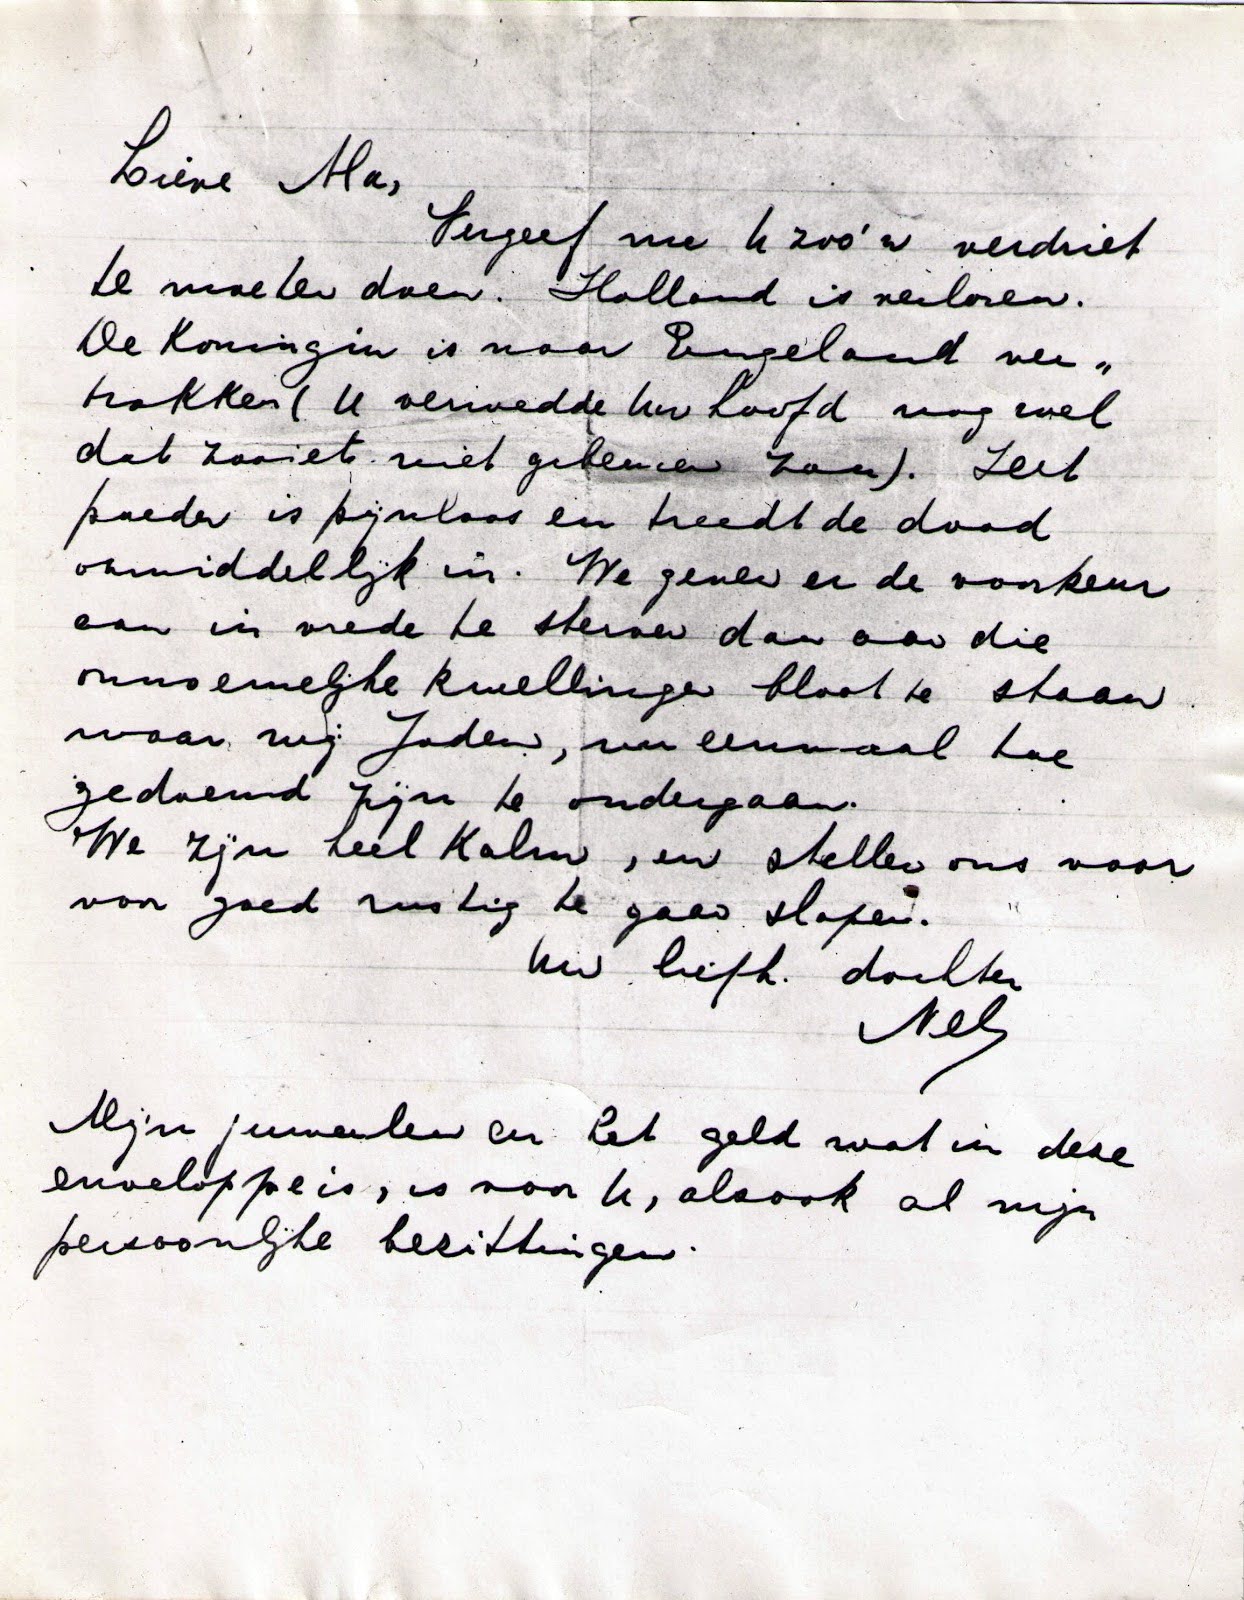 Lieve Ma,
Vergeef me U zoo'n verdriet
te moeten doen. Holland is verloren.
De Koningin is naar Engeland ver„
trokken (U verwedde Uw hoofd nog wel
dat zooiets niet gebeuren zou). Het
poeder is pijnloos en treedt de dood
onmiddellijk in. We geven er de voorkeur
aan in vrede te sterven dan aan die
onnoemelijke kwellingen bloot te staan
waar wij Joden, nu eenmaal toe
gedoemd zijn te ondergaan.
We zijn heel kalm, en stellen ons voor
voor goed rustig te gaan slapen.
Uw liefh. dochter
Nel
Mijn juweelen en het geld wat in deze
enveloppe is, is voor U, alsook al mijn
persoonlijke bezittingen.